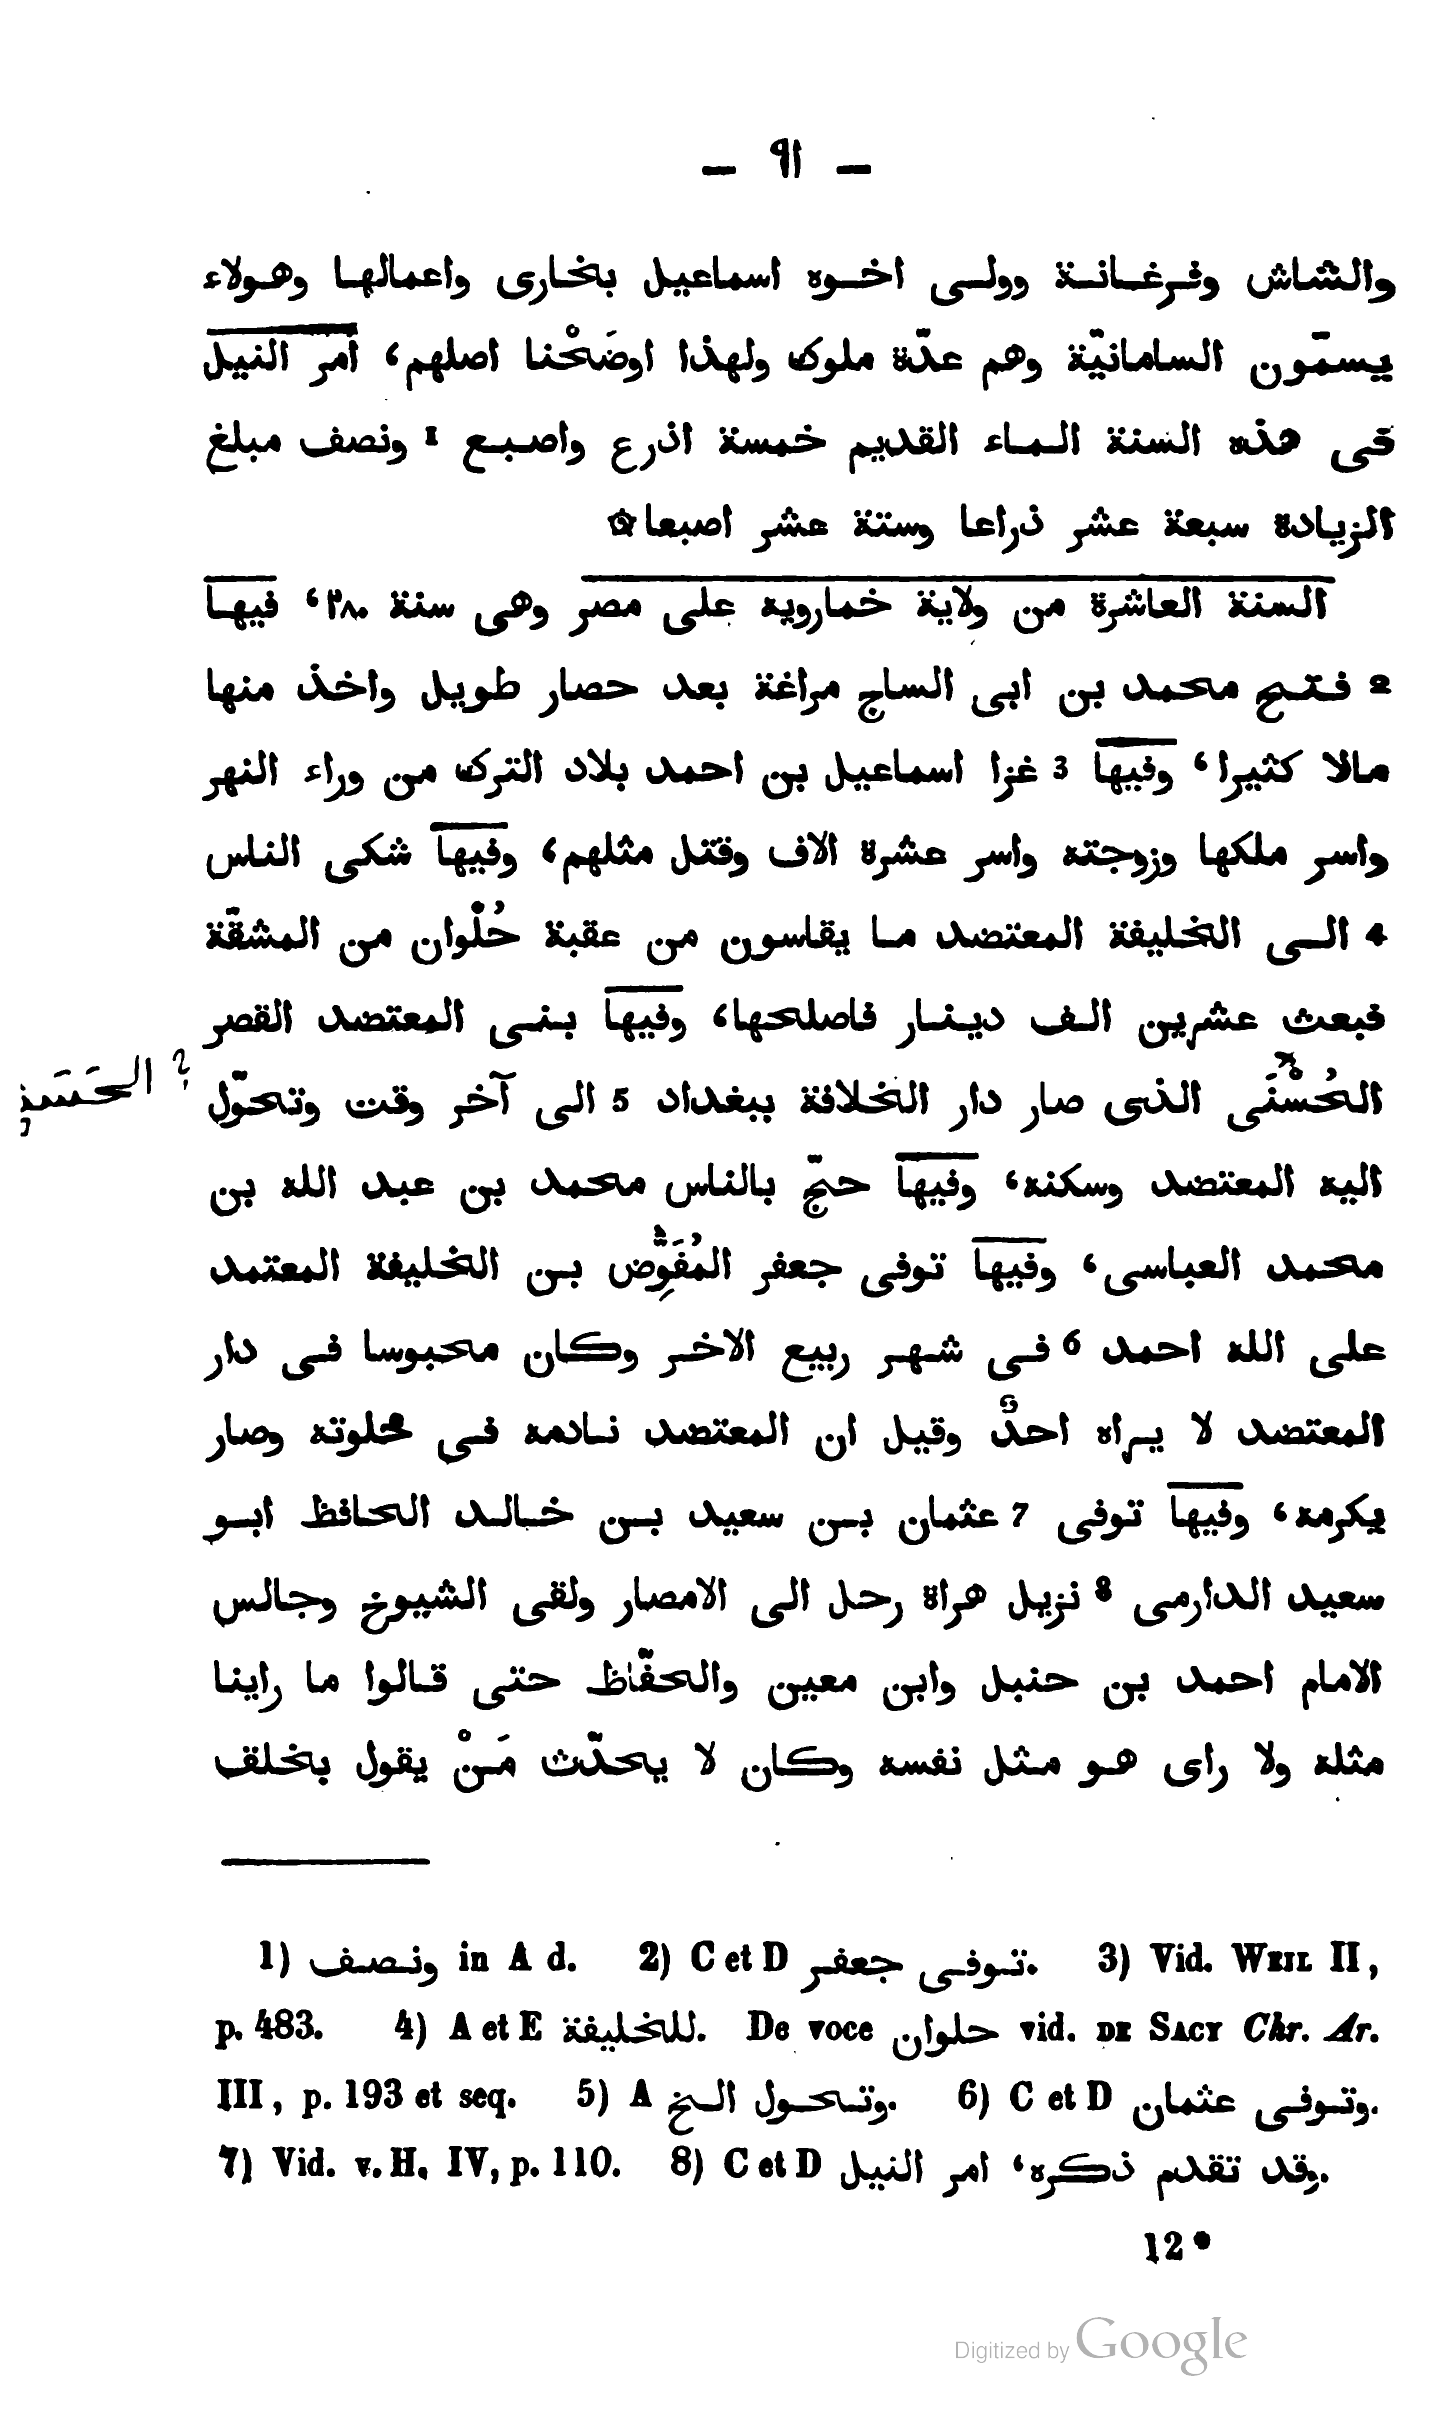 — ٩١ —
والشاش وفرغانة وولى اخوه اسماعيل بخارى واعمالها وهولاء
يسمّون السامانيّة وهم عدّة ملوك ولهذا اوضَحْنا اصلهم، أمر النيل
فى هذه السنة الماء القديم خمسة اذرع واصبع 1 ونصف مبلغ
الزيادة سبعة عشر ذراعا وستة عشر اصبعا ۞
السنة العاشرة من ولاية خمارويه على مصر وهى سنة ٢٨٠، فيها
2 فتح محمد بن ابى الساج مراغة بعد حصار طويل واخذ منها
مالا كثيرا، وفيها 3 غزا اسماعيل بن احمد بلاد الترك من وراء النهر
واسر ملكها وزوجته واسر عشرة الاف وقتل مثلهم، وفيها شكى الناس
4 الى الخليفة المعتضد ما يقاسون من عقبة حُلْوان من المشقّة
فبعث عشرين الف دينار فاصلحها، وفيها بنى المعتضد القصر
الحُسْنَى الذى صار دار الخلافة ببغداد 5 الى آخر وقت وتحوّل
? الحَسَنِى
اليه المعتضد وسكنه، وفيها حجّ بالناس محمد بن عبد الله بن
محمد العباسى، وفيها توفى جعفر المُفَوِّض بن الخليفة المعتمد
على الله احمد 6 فى شهر ربيع الاخر وكان محبوسا فى دار
المعتضد لا يراه احدٌ وقيل ان المعتضد نادمه فى خلوته وصار
يكرمه، وفيها توفى 7 عثمان بن سعيد بن خالد الحافظ ابو
سعيد الدارمى 8 نزيل هراة رحل الى الامصار ولقى الشيوخ وجالس
الامام احمد بن حنبل وابن معين والحفّاظ حتى قالوا ما راينا
مثله ولا راى هو مثل نفسه وكان لا يحدّث مَنْ يقول بخلق
1) ونصف in A d. 2) C et D توفى جعفر. 3) Vid. WEIL II,
p. 483. 4) A et E للخليفة. De voce حلوان vid. DE SACY Chr. Ar.
III, p. 193 et seq. 5) A وتحول الخ. 6) C et D وتوفى عثمان.
7) Vid. v. H. IV, p. 110. 8) C et D وقد تقدم ذكره، امر النيل.
12*
Digitized by Google